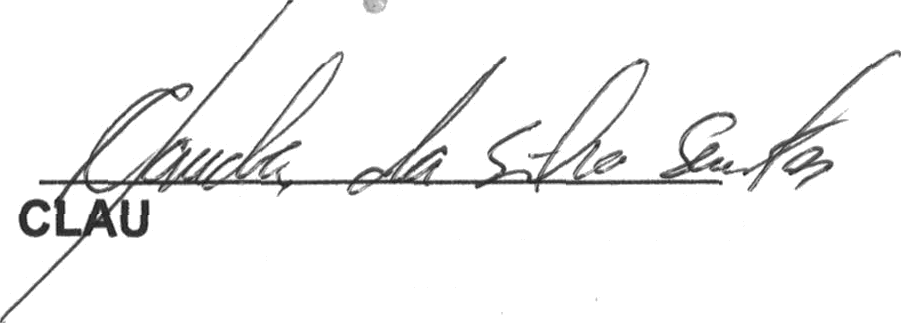 Claudia da Silva Santos
CLAU